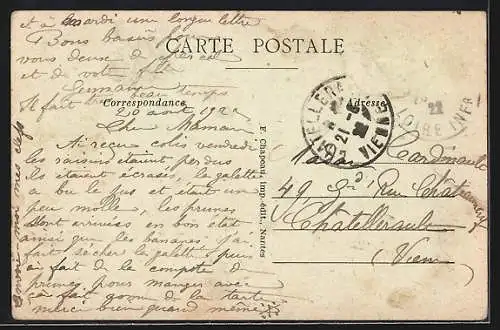 et à mardi une longue lettre
Bons baisers
vous deux
et de votre fille
Germaine
Il fait beau temps
CARTE POSTALE
Correspondance
Adresse
20 août 192
Chère Maman
Ai reçu colis vendredi
les raisins étaient perdus
ils étaient écrasés, la galette
a bu le jus et était un
peu molle, les prunes
sont arrivées en bon état
ainsi que les bananes j'ai
fait sécher la galette, puis
ai fait de la compote de
prunes, pour manger avec
ça fait genre de la tarte
merci bien quand même
mes clefs
E. Chapeau, Imp.-édit., Nantes
CHATELLERAULT
21
22
VIENNE
22
LOIRE INFRE
Cardinault
49 Gde Rue Châteauneuf
Châtellerault
Vienne